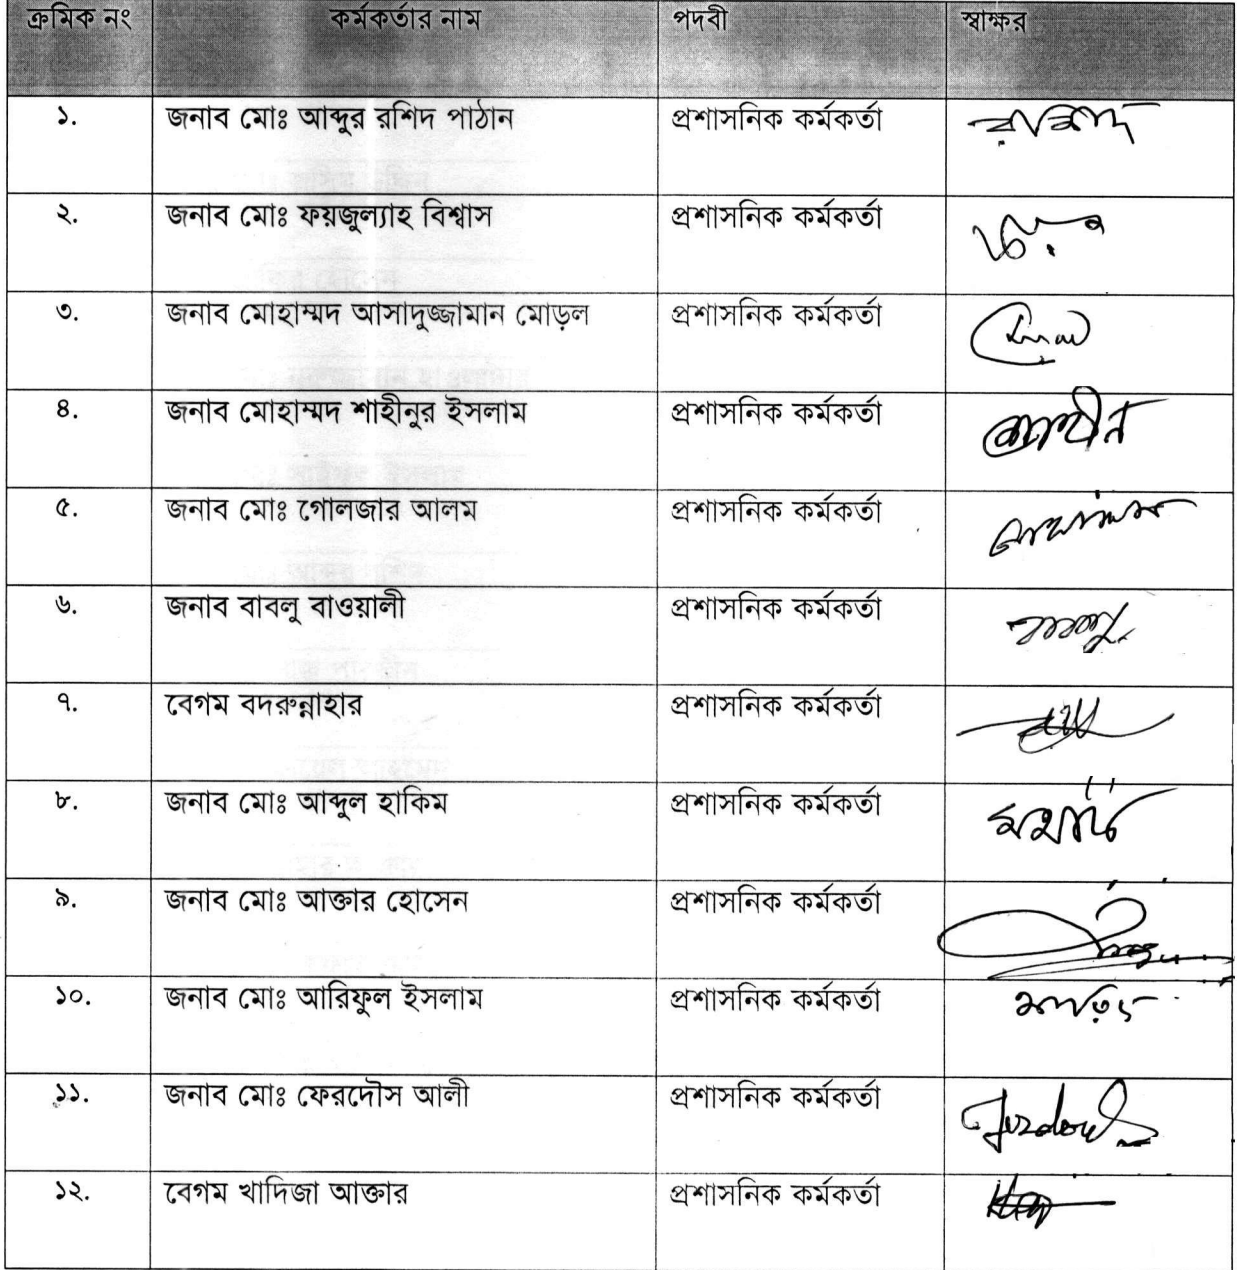 ক্রমিক নং কর্মকর্তার নাম পদবী স্বাক্ষর
১. জনাব মোঃ আব্দুর রশিদ পাঠান প্রশাসনিক কর্মকর্তা
২. জনাব মোঃ ফয়জুল্যাহ বিশ্বাস প্রশাসনিক কর্মকর্তা
৩. জনাব মোহাম্মদ আসাদুজ্জামান মোড়ল প্রশাসনিক কর্মকর্তা
৪. জনাব মোহাম্মদ শাহীনুর ইসলাম প্রশাসনিক কর্মকর্তা
৫. জনাব মোঃ গোলজার আলম প্রশাসনিক কর্মকর্তা
৬. জনাব বাবলু বাওয়ালী প্রশাসনিক কর্মকর্তা
৭. বেগম বদরুন্নাহার প্রশাসনিক কর্মকর্তা
৮. জনাব মোঃ আব্দুল হাকিম প্রশাসনিক কর্মকর্তা
৯. জনাব মোঃ আক্তার হোসেন প্রশাসনিক কর্মকর্তা
১০. জনাব মোঃ আরিফুল ইসলাম প্রশাসনিক কর্মকর্তা
১১. জনাব মোঃ ফেরদৌস আলী প্রশাসনিক কর্মকর্তা
১২. বেগম খাদিজা আক্তার প্রশাসনিক কর্মকর্তা